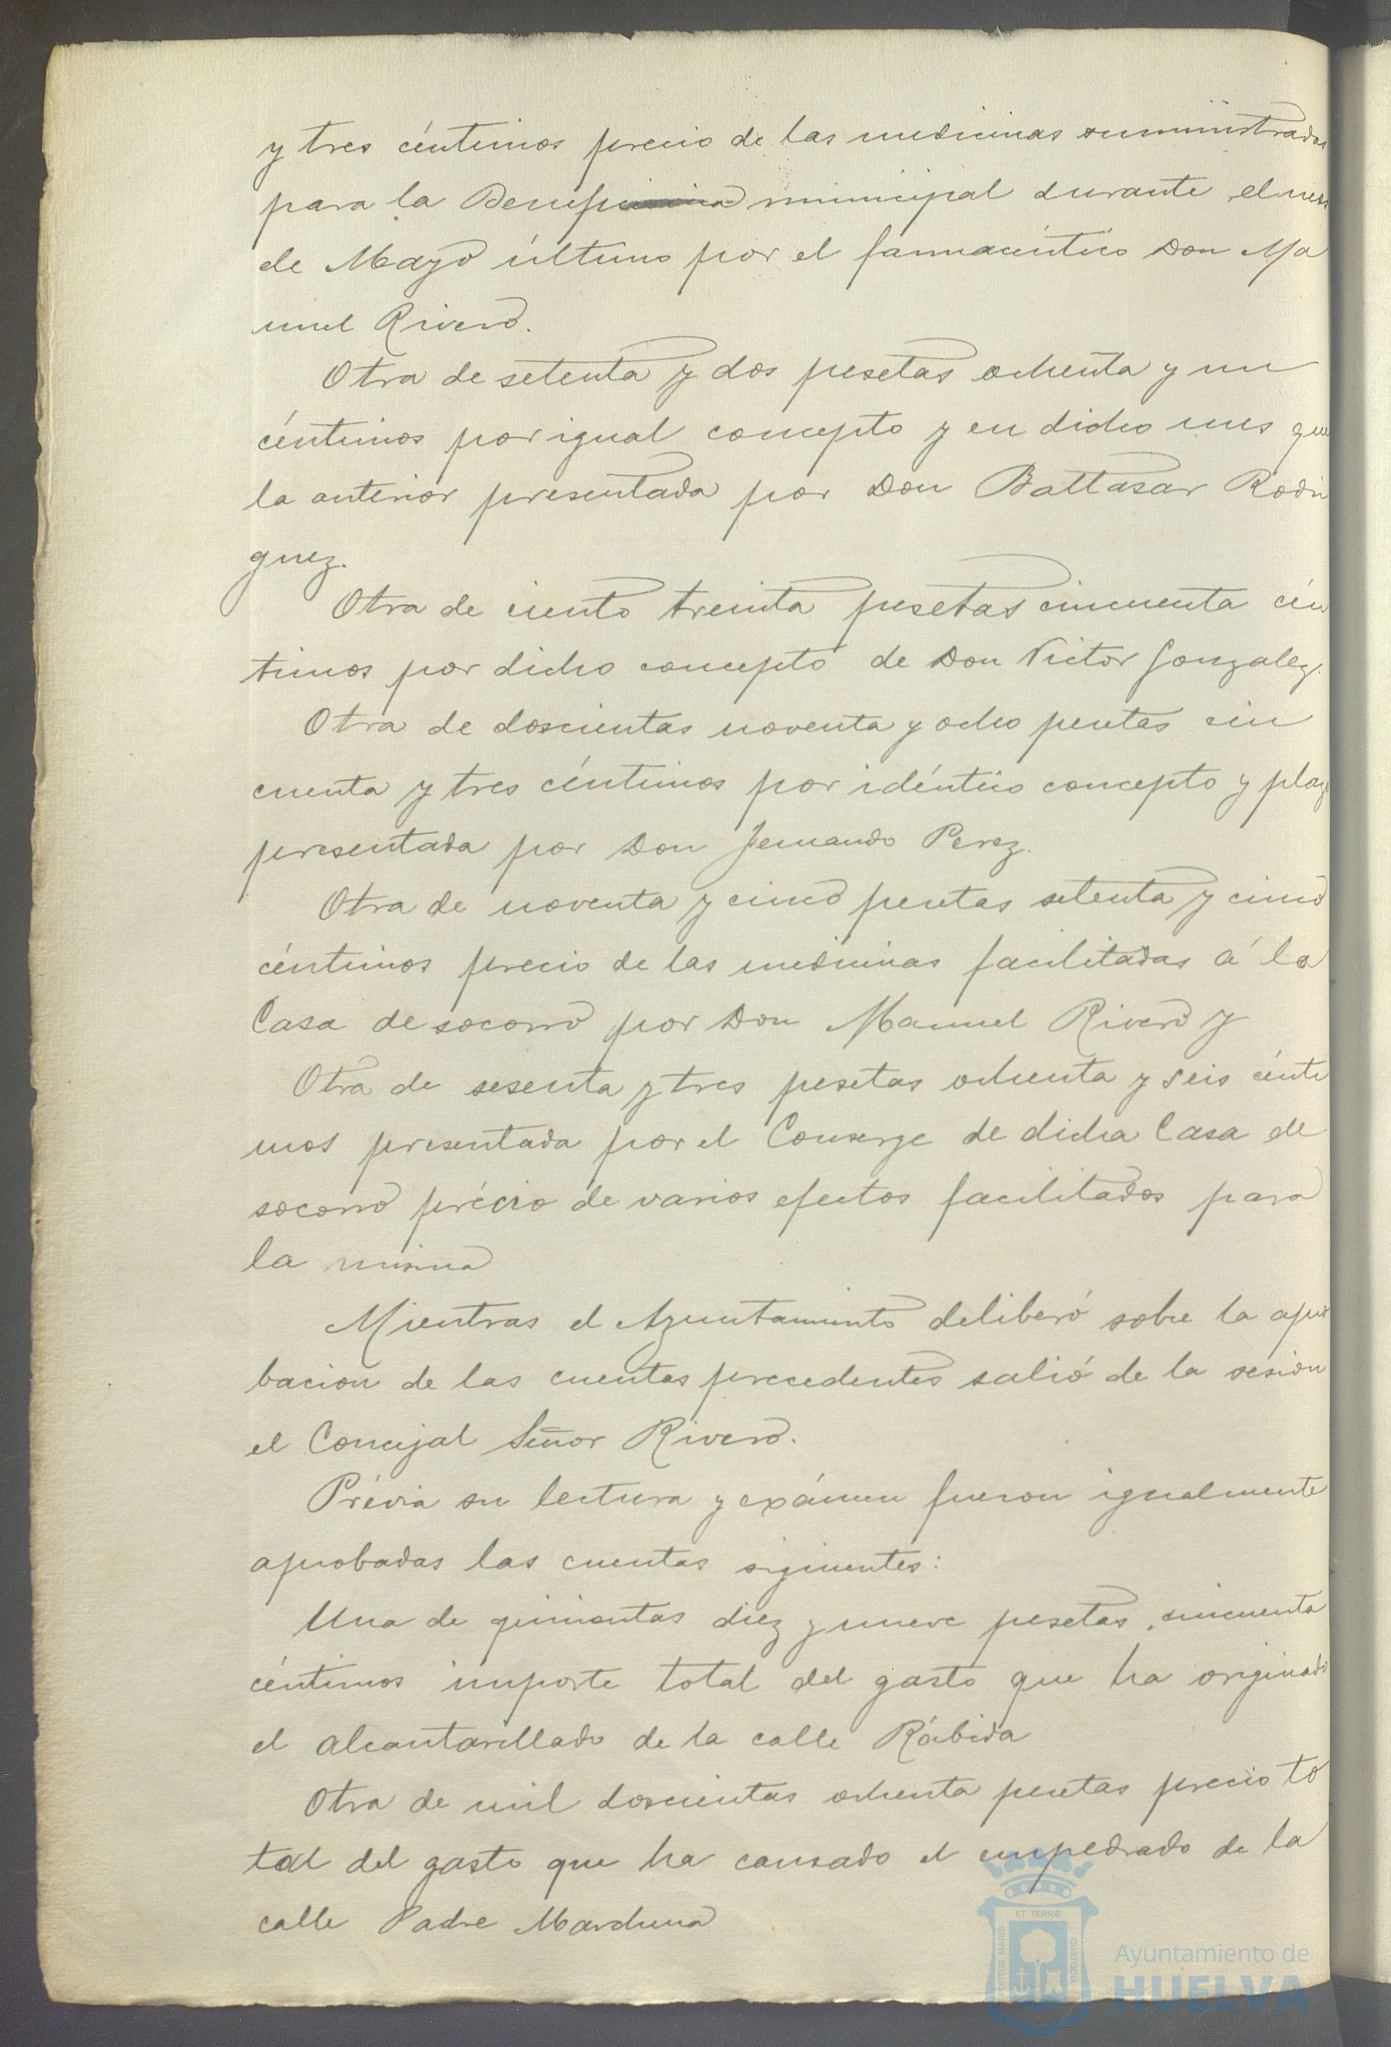 y tres céntimos precio de las medicinas suministradas
para la Beneficencia municipal durante el mes
de Mayo último por el farmacéutico Don Ma
nuel Rivero.
Otra de setenta y dos pesetas ochenta y un
céntimos por igual concepto y en dicho mes que
la anterior presentada por Don Baltasar Rodri
guez.
Otra de ciento treinta pesetas cincuenta cén
timos por dicho concepto de Don Victor Gonzalez.
Otra de doscientas noventa y ocho pesetas cin
cuenta y tres céntimos por idéntico concepto y
presentada por Don Fernando Perez.
Otra de noventa y cinco pesetas setenta y cinco
céntimos precio de las medicinas facilitadas á la
Casa de socorro por Don Manuel Rivero y
Otra de sesenta y tres pesetas ochenta y seis cénti
mos presentada por el Conserge de dicha Casa de
socorro précio de varios efectos facilitados para
la misma
Mientras el Ayuntamiento deliberó sobre la apro
bacion de las cuentas precedentes salió de la sesion
el Concejal Señor Rivero.
Prévia su lectura y exámen fueron igualmente
aprobadas las cuentas siguientes:
Una de quinientas diez y nueve pesetas, cincuenta
céntimos importe total del gasto que ha originado
el alcantarillado de la calle Rábida
Otra de mil doscientas ochenta pesetas precio to
tal del gasto que ha causado el empedrado de la
calle Padre Marchena
PORTUS MARIS ET TERRÆ CUSTODIA
Ayuntamiento de
HUELVA